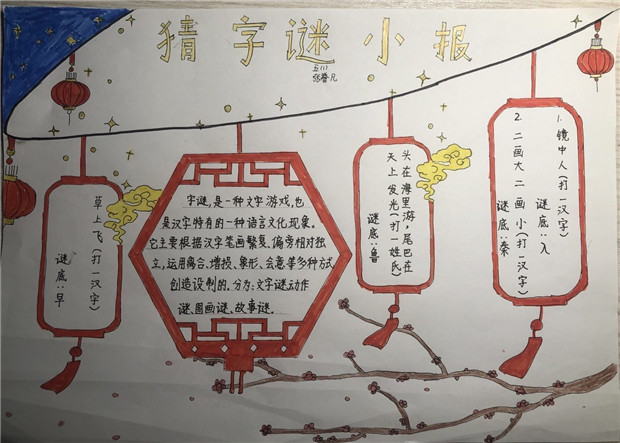 猜字谜小报
五(1)
草上飞(打一汉字)
谜底:早
字谜,是一种文字游戏,也
是汉字特有的一种语言文化现象。
它主要根据汉字笔画繁复、偏旁相对独
立,运用离合、增损、象形、会意等多种方式
创造设制的。分为:文字谜动作
谜、图画谜、故事谜。
头在海里游,尾巴在
天上发光(打一姓氏)
谜底:鲁
1. 镜中人(打一汉字)
谜底:入
2. 二画大二画小(打一汉字)
谜底:秦